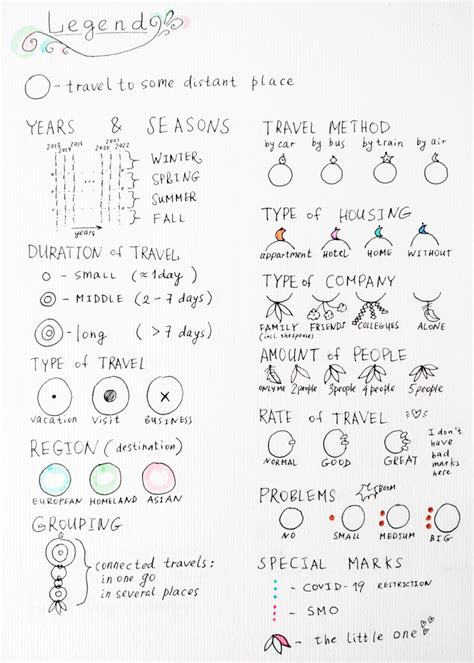 Legend
- travel to some distant place
YEARS & SEASONS
2013 2014 2015 ... 2020 2021 2022
WINTER
SPRING
SUMMER
FALL
years
DURATION of TRAVEL
- SMALL (≈1day)
- MIDDLE (2-7 days)
- long (>7 days)
TYPE of TRAVEL
vacation visit BUSINESS
REGION (destination)
EUROPEAN HOMELAND ASIAN
GROUPING
connected travels:
in one go
in several places
TRAVEL METHOD
by car by bus by train by air
TYPE of HOUSING
appartment HOTEL HOME WITHOUT
TYPE of COMPANY
FAMILY FRIENDS COLLEGUES ALONE
AMOUNT of PEOPLE
ONLY ME 2people 3people 4people 5people
RATE of TRAVEL
NORMAL GOOD GREAT
I don't
have
bad
marks
here
PROBLEMS
BOOM
NO SMALL MEDIUM BIG
SPECIAL MARKS
- COVID-19 RESTRICTION
- SMO
- the little one